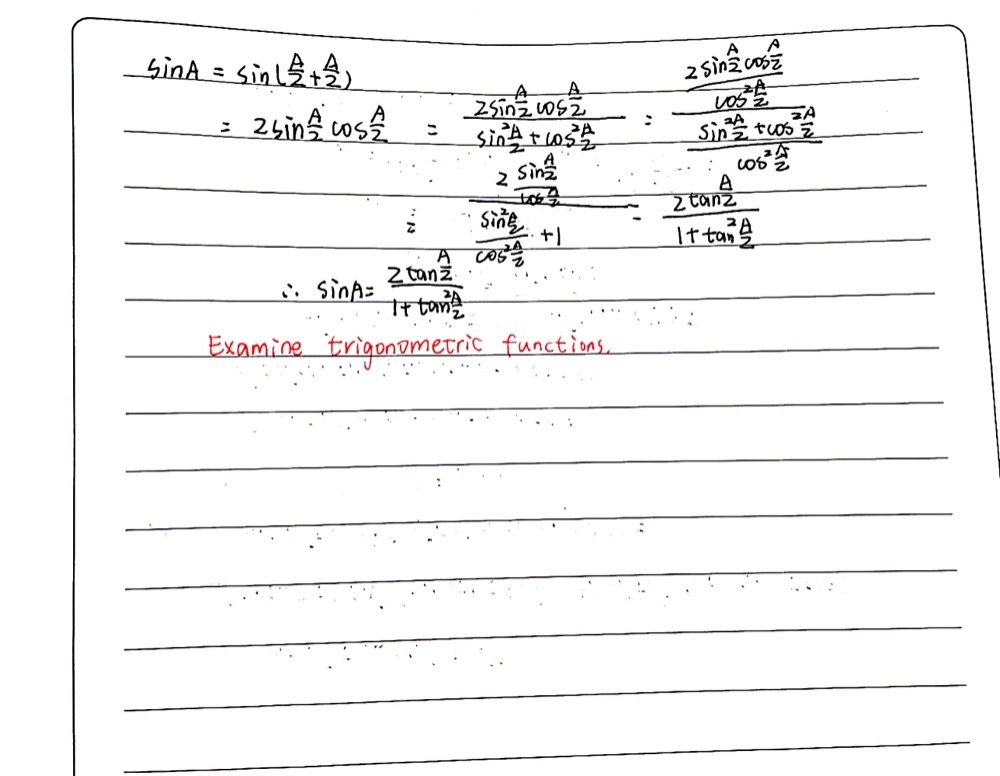 sinA = sin(A/2 + A/2)
= 2sin A/2 cos A/2 = (2sin A/2 cos A/2)/(sin² A/2 + cos² A/2) = ((2sin A/2 cos A/2)/(cos² A/2))/((sin² A/2 + cos² A/2)/(cos² A/2))
= (2 (sin A/2)/(cos A/2))/((sin² A/2)/(cos² A/2) + 1) = (2tan A/2)/(1 + tan² A/2)
∴ sinA = (2tan A/2)/(1 + tan² A/2)
Examine trigonometric functions.